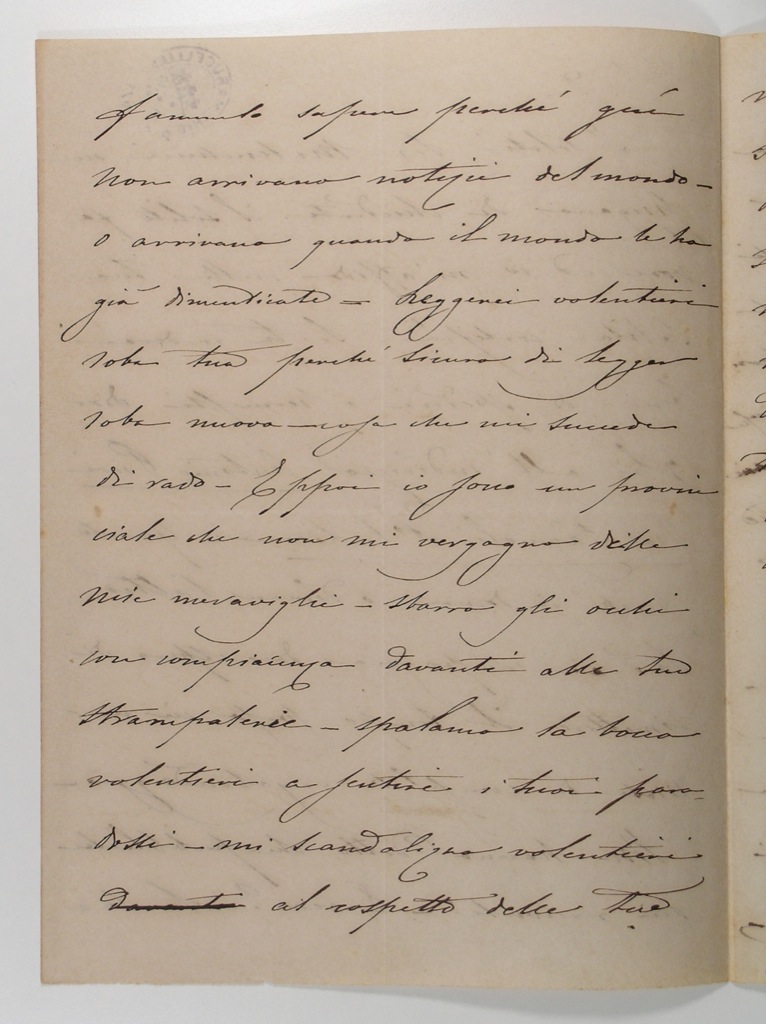 Fammelo sapere perché quì
non arrivano notizie del mondo –
o arrivano quando il mondo le ha
già dimenticate – Leggerei volentieri
roba tua perché sicuro di legger
roba nuova – cosa che mi succede
di rado – Eppoi io sono un provin
ciale che non mi vergogno delle
mie meraviglie – sbarro gli occhi
con compiacenza davanti alle tue
strampalerie – spalanco la bocca
volentieri a sentire i tuoi para-
dossi – mi scandalizzo volentieri
davanti al cospetto delle tue